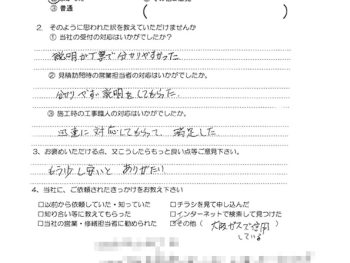 ③ 普通
2. そのように思われた訳を教えていただけませんか
① 当社の受付の対応はいかがでしたか？
説明が丁寧で分かりやすかった
② 見積訪問時の営業担当者の対応はいかがでしたか。
分りやすい説明をしてもらった。
③ 施工時の工事職人の対応はいかがでしたか？
迅速に対応してもらって、満足した
3、お褒めいただける点、又こうしたらもっと良い点等ご意見下さい。
もう少し安いと ありがたい
4、当社に、ご依頼されたきっかけをお教え下さい
□以前から依頼していた・知っていた □チラシを見て申し込んだ
□知り合い等に教えてもらった □インターネットで検索して見つけた
□当社の営業・修繕担当者に勧められた ☑その他（大阪ガスで使用
している